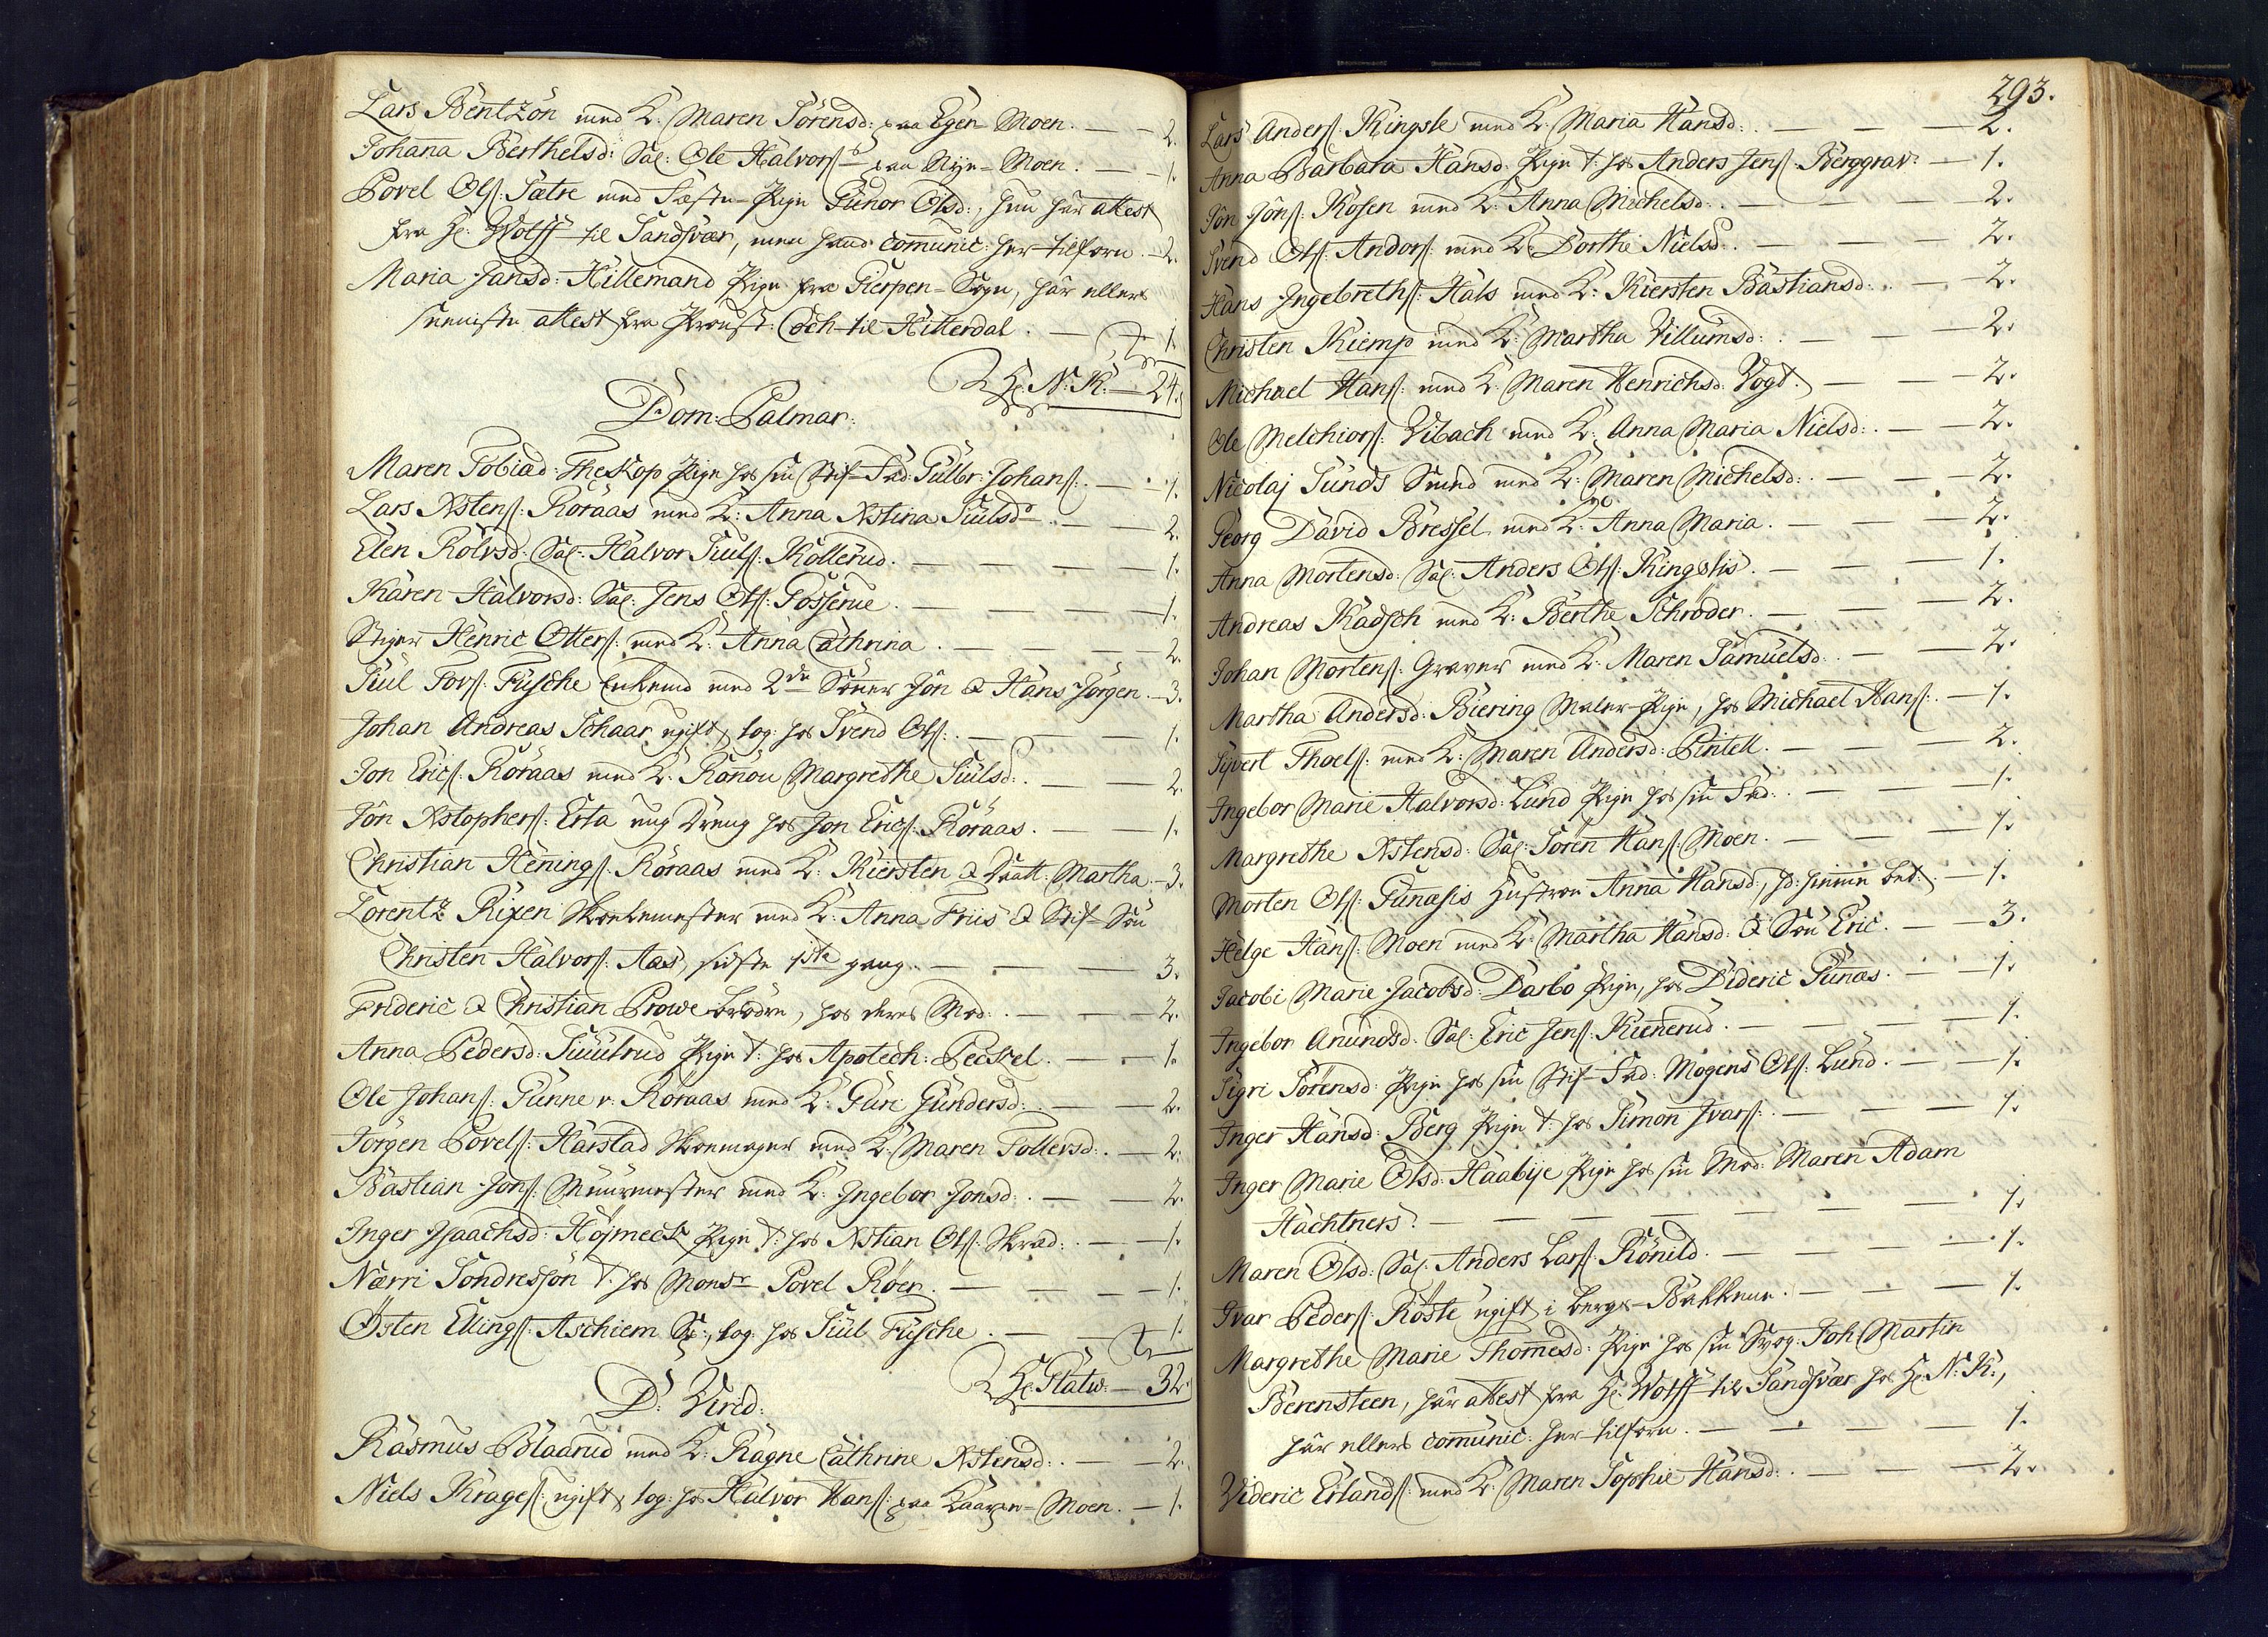 Lars Bentzön med K: Maren Sörensd: paa Egen-Moen. — 2.
Johana Berthelsd: Sal: Ole Halvorſ: paa Nye-Moen. — 1.
Povel Olſ: Sætre med Fæste-Pige Gunor Olsd:, hun har attest
fra Hr: Wolff til Sandsvær, men hand comunic: her tilforn. — 2.
Maria Jansd: Hillemand Pige fra Gierpen-Sogn, har ellers
seeniste attest fra Proust: Coch til Hitterdal. — 1.
Hr: N: K: — 24.
Dom: Palmar:
Maren Tobiad: Theskop Pige hos sin Stif-Fad: Gulbr: Johanſ: — 1.
Lars Xstenſ: Röraas med K: Anna Xstina Siulsd: — 2.
Elen Rolvsd: Sal: Halvor Siulſ: Kollerud. — 1.
Karen Halvorsd: Sal: Jens Olſ: Gosserue. — 1.
Stiger Henric Otterſ: med K: Anna Cathrina. — 2.
Siul Torſ: Fusche Enkemd med 2de Sönner Jön & Hans Jörgen. — 3.
Johan Andreas Schaar ugift, log: hos Svend Olſ: — 1.
Jon Ericſ: Röraas med K: Rönou Margrethe Siulsd: — 2.
Jön Xstopherſ: Erta ung Dreng hos Jon Ericſ: Röraas. — 1.
Christian Heningſ: Röraas med K: Kiersten & Datt: Martha. — 3.
Lorentz Rixen Skolemester med K: Anna Friis & Stif-Sön
Christen Halvorſ: Aas, sidste 1ste gang. — 3.
Frideric & Christian Prowe brödre, hos deres Mod: — 2.
Anna Pedersd: Suulrud Pige t: hos Apotech: Peckel. — 1.
Ole Johanſ: Gunne v: Röraas med K: Guri Gundersd: — 2.
Jörgen Povelſ: Harstad Skoemager med K: Maren Tollevsd: — 2.
Bastian Jonſ: Muurmester med K: Ingebor Jonsd: — 2.
Inger Isaachsd: Höjmeck Pige t: hos Xstian Olſ: Skræd: — 1.
Nærri Söndressön t: hos Monsr Povel Röer. — 1.
Östen Ellingſ: Aschiem Sr:, log: hos Siul Fusche. — 1.
Hr: Statw: — 32.
D: Virid:
Rasmus Blaarud med K: Ragne Cathrine Xstensd: — 2.
Niels Krageſ: ugift, log: hos Halvor Hanſ: paa Laagen-Moen. — 1.
293.
Lars Anderſ: Kingsle med K: Maria Hansd: — 2.
Anna Barbara Hansd: Pige t: hos Anders Jenſ: Berggrav: — 1.
Jön Jönſ: Kosen med K: Anna Michelsd: — 2.
Svend Olſ: Andorſ: med K: Dorthe Nielsd: — 2.
Hans Ingebrethſ: Hals med K: Kiersten Bastiansd: — 2.
Christen Kiemp med K: Martha Villumsd: — 2.
Michael Hanſ: med K: Maren Henrichsd: Vogt. — 2.
Ole Melchiorſ: Vibach med K: Anna Maria Nielsd: — 2.
Nicolaj Sunds Smed med K: Maren Michelsd: — 2.
Georg David Bressel med K: Anna Maria. — 2.
Anna Mortensd: Sal: Anders Olſ: Kingslis. — 1.
Andreas Kadsch med K: Berthe Schröder. — 2.
Johan Mortenſ: Graver med K: Maren Samuelsd: — 2.
Martha Andersd: Biering Maler-Pige, hos Michael Hanſ: — 1.
Sivert Thoelſ: med K: Maren Andersd: Pintell. — 2.
Ingebor Marie Halvorsd: Lund Pige hos sin Fad: — 1.
Margrethe Xstensd: Sal: Sören Hanſ: Moen. — 1.
Morten Olſ: Funæsis Hustroe Anna Hansd:, hd: hiemme bet: — 1.
Helge Hanſ: Moen med K: Martha Hansd: & Sön Eric. — 3.
Jacobi Marie Jacobsd: Darbo Pige, hos Dideric Funæs. — 1.
Ingebor Anundsd: Sal: Eric Jenſ: Kienerud. — 1.
Sigri Sörensd: Pige hos sin Stif-Fad: Mogens Olſ: Lund. — 1.
Inger Hansd: Berg Pige t: hos Simon Ivarſ: — 1.
Inger Marie Olsd: Haabye Pige hos sin Mod: Maren Adam
Hachtners. — 1.
Maren Olsd: Sal: Anders Larſ: Rönild. — 1.
Ivar Pederſ: Röste ugift i Bergs-Bakkene. — 1.
Margrethe Marie Thomesd: Pige hos sin Svog: Joh: Martin
Berensteen, har attest fra Hr: Wolff til Sandsvær hos Hr: N: K:,
har ellers comunic: her tilforn. — 1.
Dideric Erlandſ: med K: Maren Sophie Hansd: — 2.